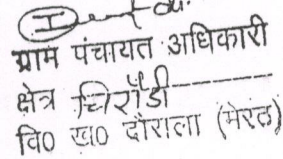 ग्राम पंचायत अधिकारी
क्षेत्र चिरौडी
वि0 ख0 दौराला (मेरठ)